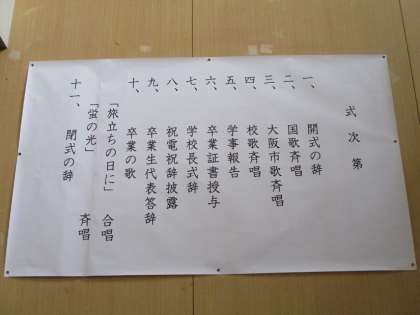 式次第
一、開式の辞
二、国歌斉唱
三、大阪市歌斉唱
四、校歌斉唱
五、学事報告
六、卒業証書授与
七、学校長式辞
八、祝電祝辞披露
九、卒業生代表答辞
十、卒業の歌
「旅立ちの日に」 合唱
「蛍の光」 斉唱
十一、閉式の辞